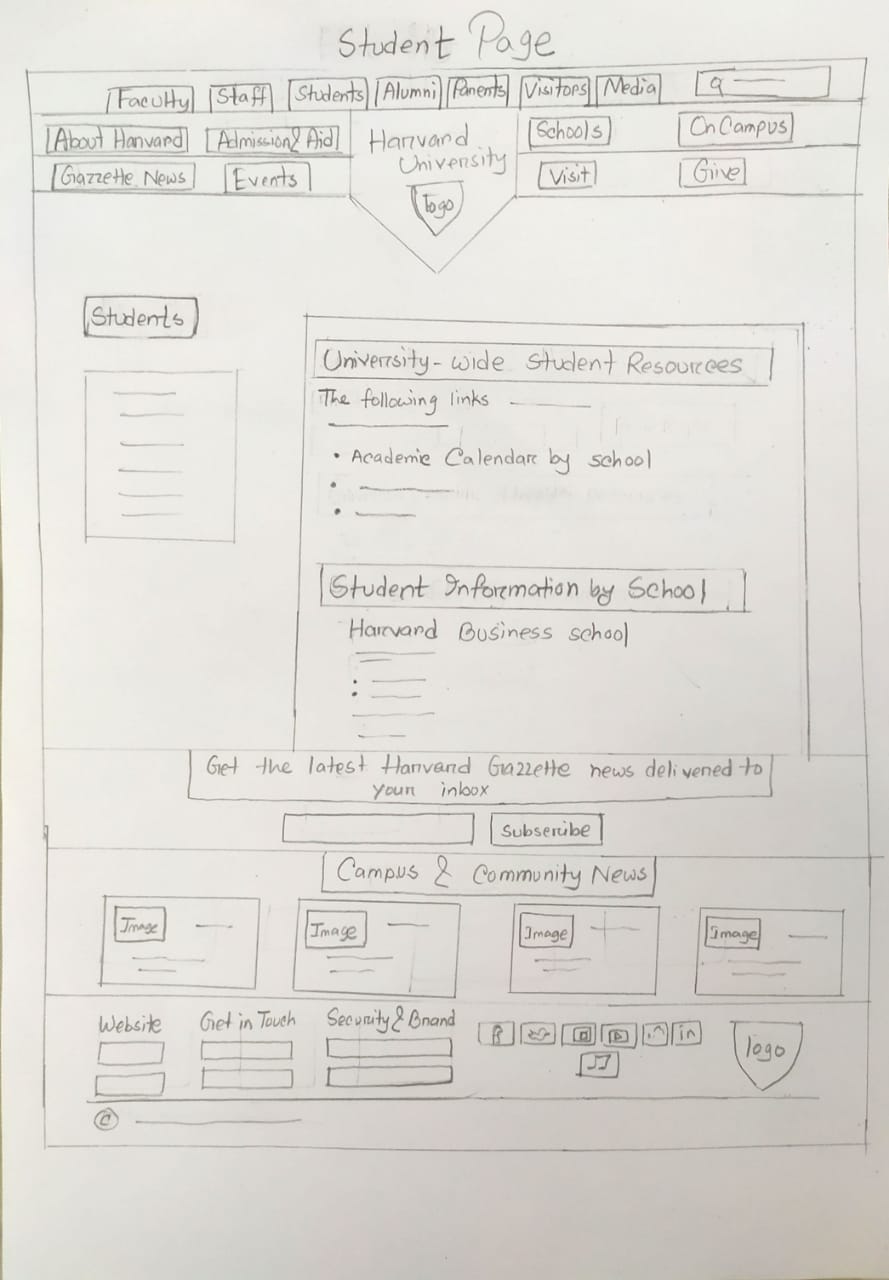 Student Page
Faculty Staff Students Alumni Parents Visitors Media
About Harvard Admission & Aid Harvard University Schools On Campus
Gazzette News Events logo Visit Give
Students
University-wide Student Resources
The following links
• Academic Calendar by school
Student Information by School
Harvard Business school
Get the latest Harvard Gazzette news delivered to
your inbox
Subscribe
Campus & Community News
Image Image Image Image
Website Get in Touch Security & Brand
in
logo
©